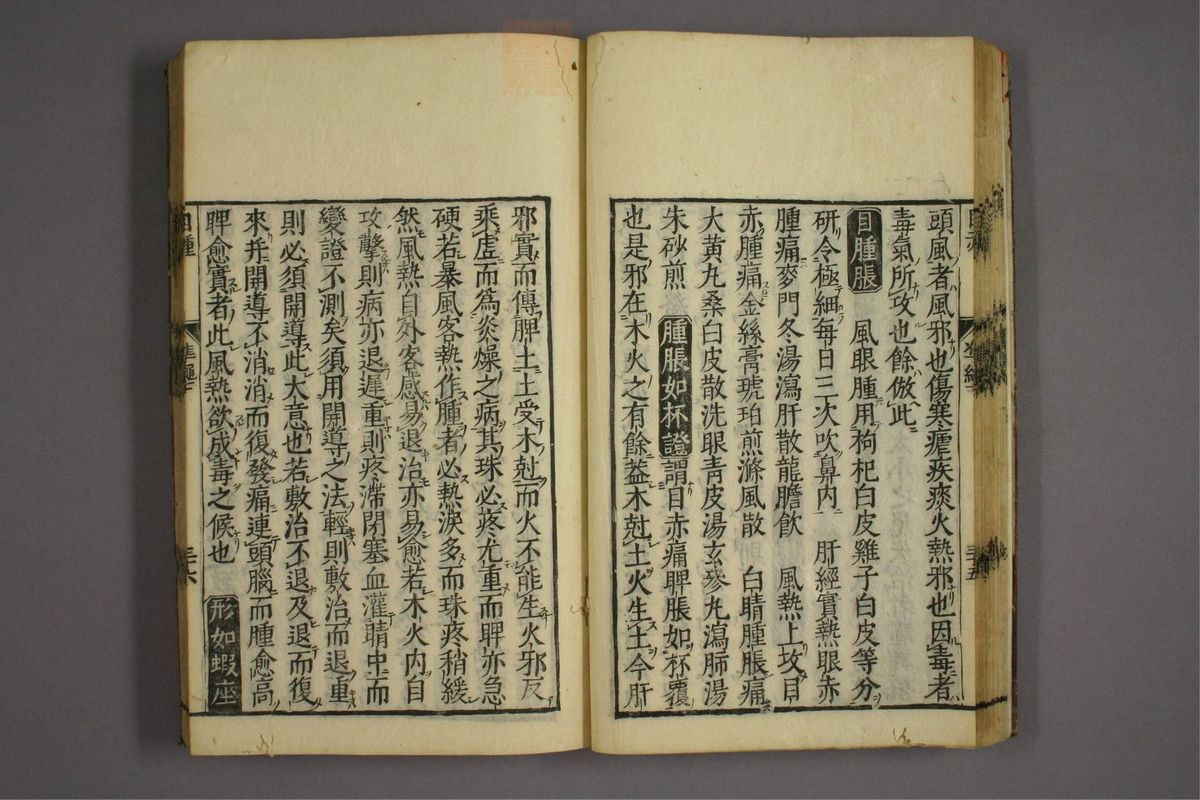 頭風者風邪也傷寒瘧疾痰火熱邪也因毒者
毒氣所攻也餘倣此
目腫脹 風眼腫用枸杞白皮雞子白皮等分
研令極細每日三次吹鼻内 肝經實熱眼赤
腫痛麥門冬湯瀉肝散龍膽飲 風熱上攻目
赤腫痛金絲膏琥珀煎滌風散 白睛腫脹痛
大黃丸桑白皮散洗眼靑皮湯玄參丸瀉肺湯
朱砂煎 腫脹如杯證謂目赤痛脾脹如杯覆
也是邪在木火之有餘葢木尅土火生土今肝
邪實而傳脾土土受木尅而火不能生火邪反
乘虛而爲炎燥之病其珠必疼尤重而睥亦急
硬若暴風客熱作腫者必熱淚多而珠疼稍緩
然風熱自外客感易退治亦易愈若木火内自
攻擊則病亦退遲重則疼滯閉塞血灌睛中而
變證不測矣須用開導之法輕則敷治而退重
則必須開導此大意也若敷治不退及退而復
來并開導不消消而復發痛連頭腦而腫愈高
睥愈實者此風熱欲成毒之候也 形如蝦座
目腫
準繩
三六
三五